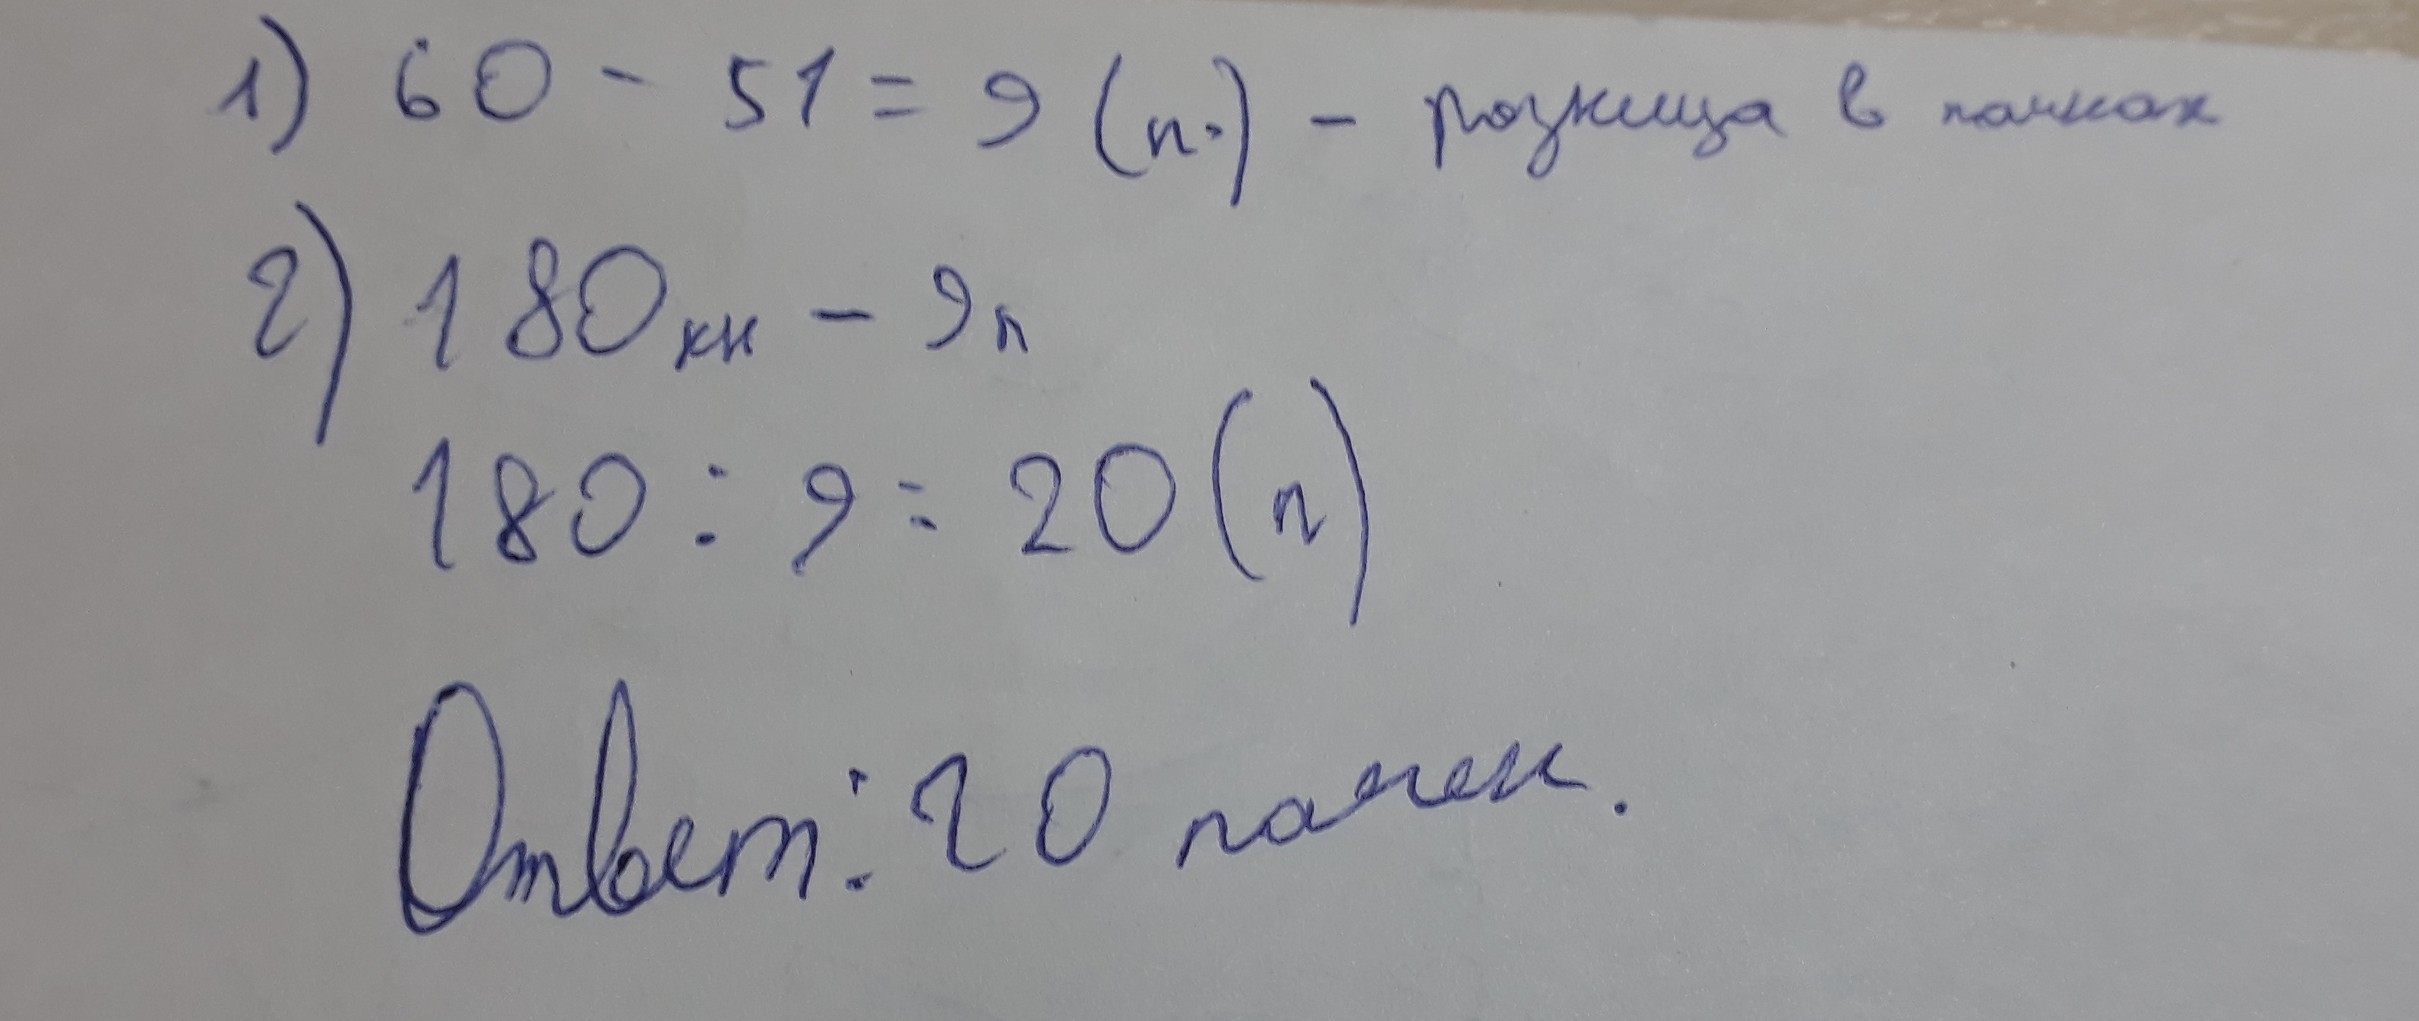 1) 60 - 51 = 9 (п.) - разница в пачках
2) 180 кн - 9 п
180 : 9 = 20 (п)
Ответ: 20 пачек.